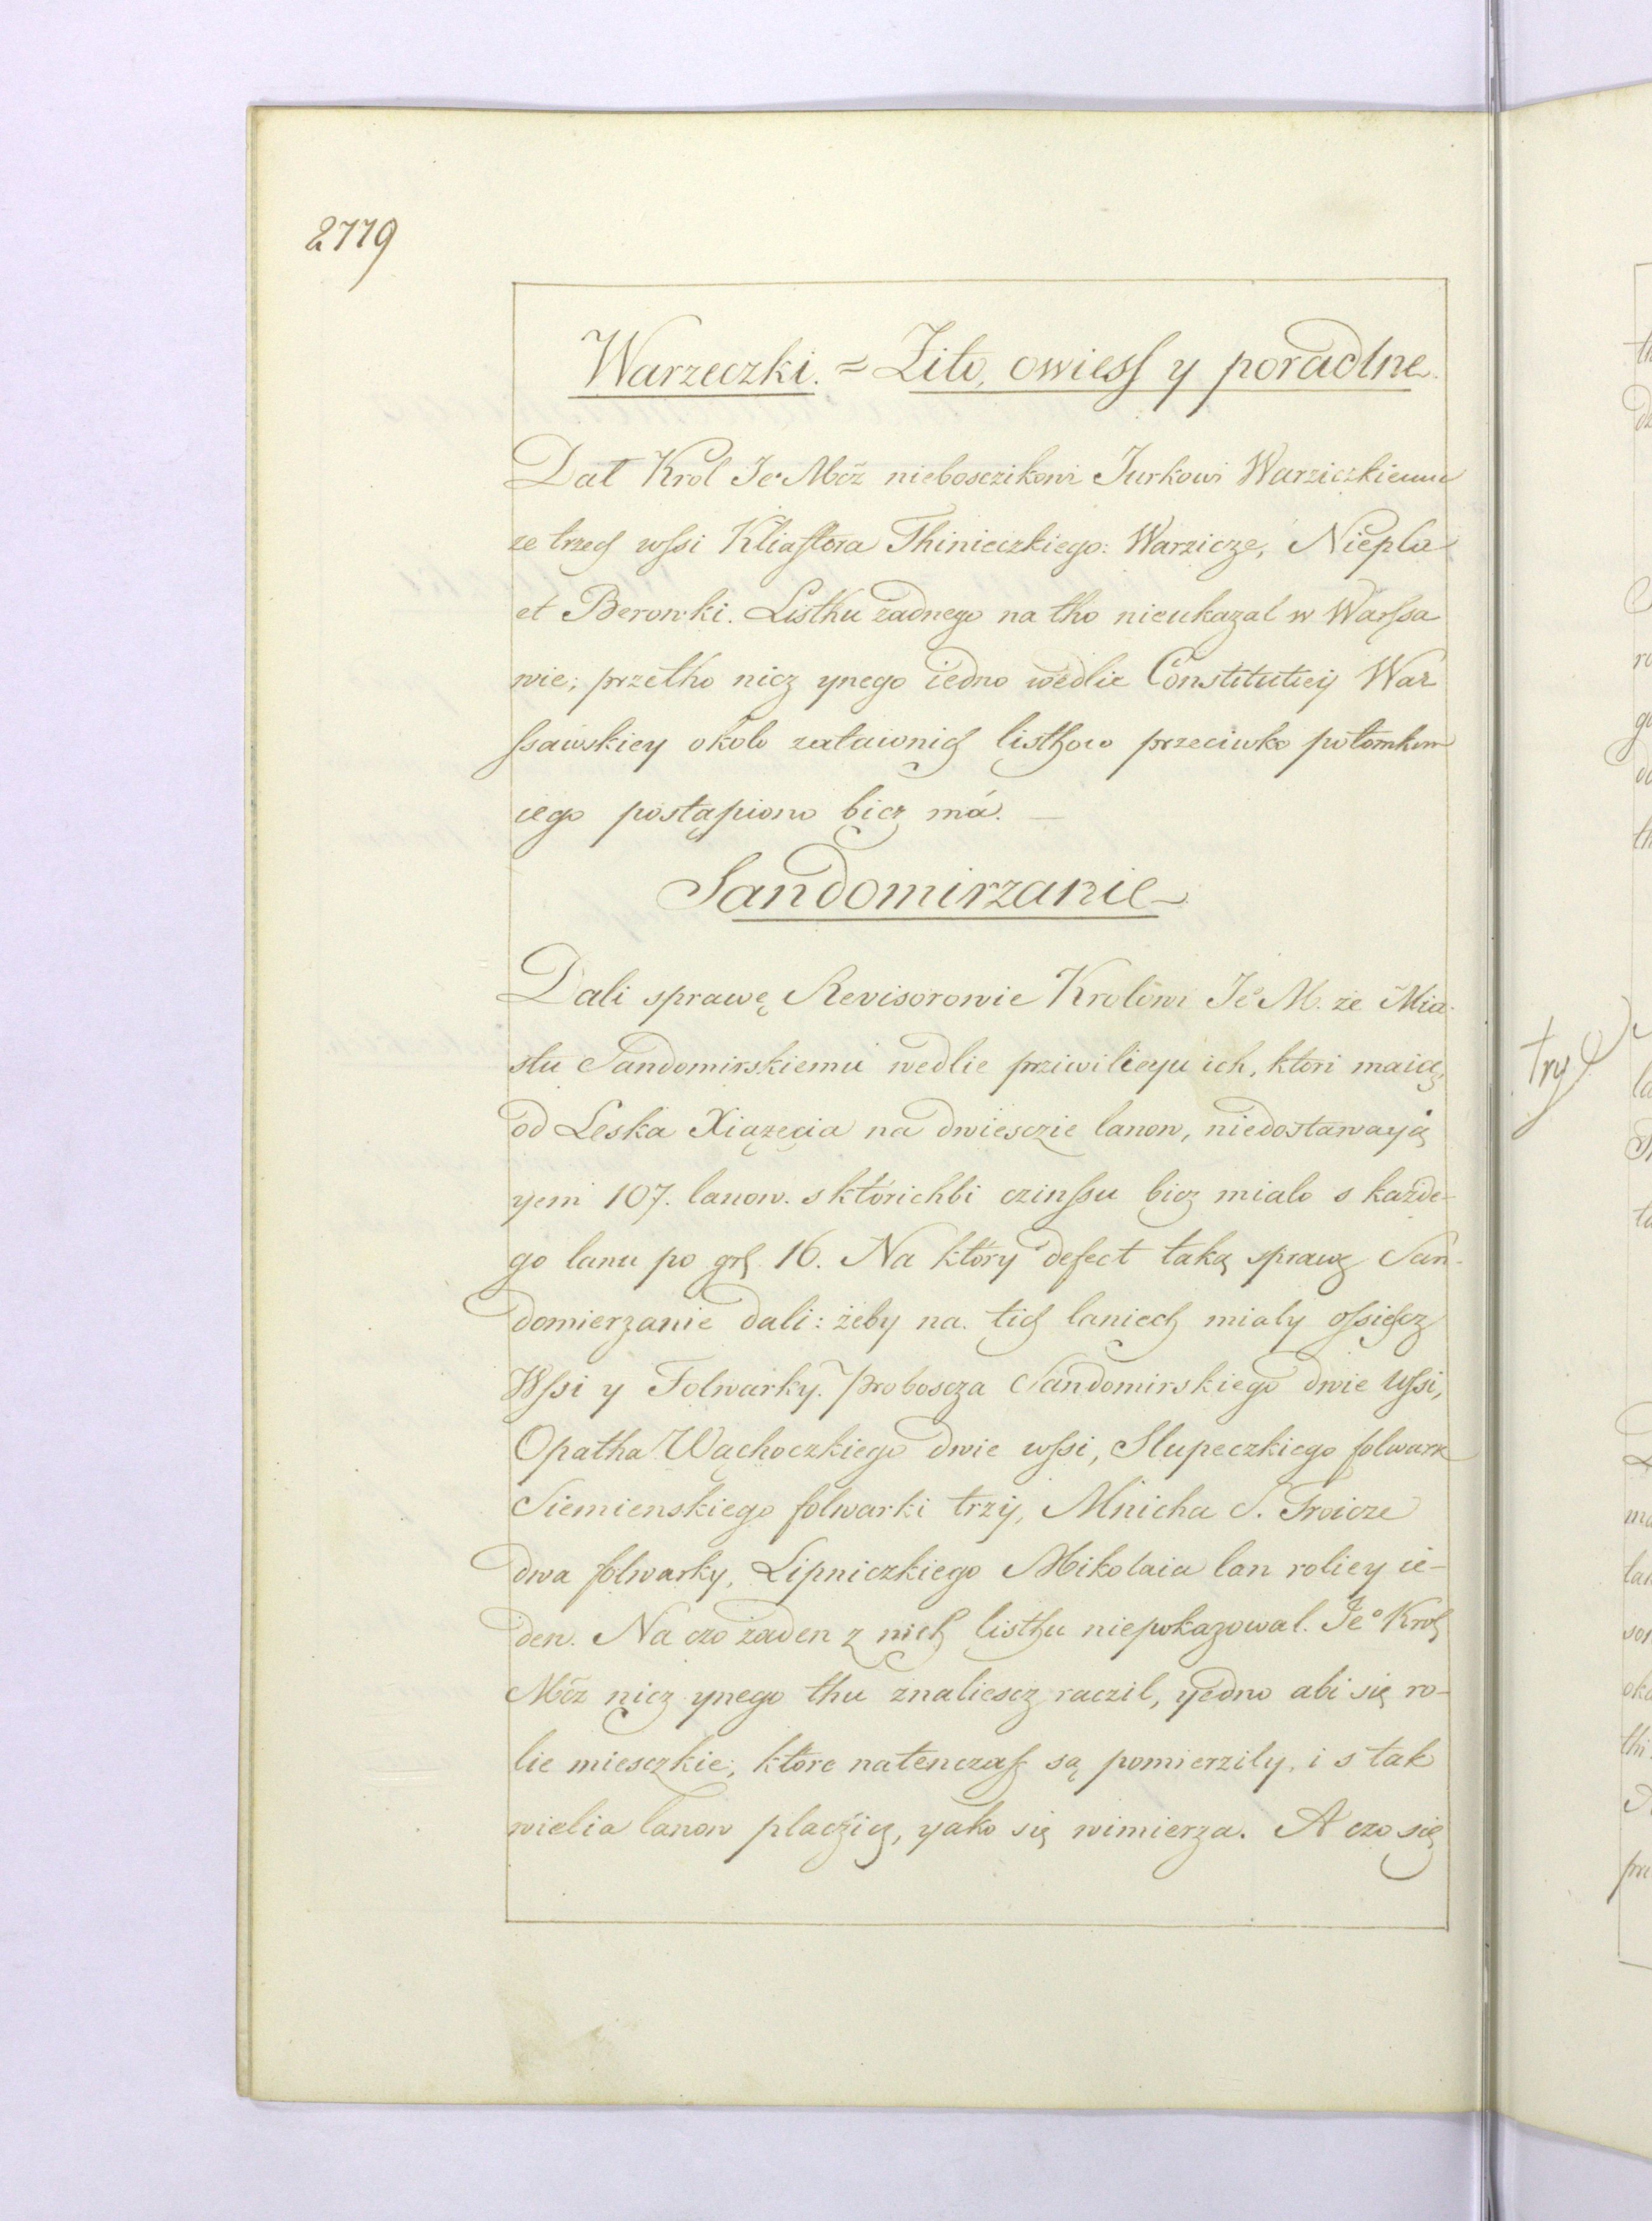 2779
Warzeczki. = Zito, owiesſ y poradlne.
Dał Krol Je° Mcz nieboszczikowi Jurkowi Warziczkiemu
ze trzech wſsi Kliaſtora Thinieczkiego: Warzicze, Niepla
et Berowki. Listhu zadnego na tho nieukazal w Warſsa
wie; przetho nicz ynego iedno wedlie Constitutiey War
ſsawskiey okolo zatawnich listhow przeciwko potomkom
iego postąpiono bicz má. —
Sandomirzanie
Dali sprawę Revisorowie Krolowi Je° M. że Mia-
stu Sandomirskiemu wedlie przivilieyu ich, ktori maią,
od Leska Xiązęcia na dwiesczie lanow, niedostawayą
yem 107. lanow. s którichbi czinſsu bicz mialo s kazde-
go lanu po grſ 16. Na który defect taką sprawę San-
domierzanie dali: żeby na tich laniech mialy oſsieſcz
Wſsi y Folwarky. Proboscza Sandomirskiego dwie wſsi,
Opatha Wąchoczkiego dwie wſsi, Slupeczkiego folwark
Siemienskiego folwarki trzy, Mnicha S. Troicze
dwa folwarky, Lipniczkiego Mikolaia lan roliey ie-
den. Na czo żaden z nich listhu niepokazowal. Je° Krol
Mcz nicz ynego thu znaliescz raczil, yedno abi się ro-
lie miesczkie, które natenczaſ są pomierzily, i s tak
wielia lanow placzicz, yako się wimierza. A czo się
try